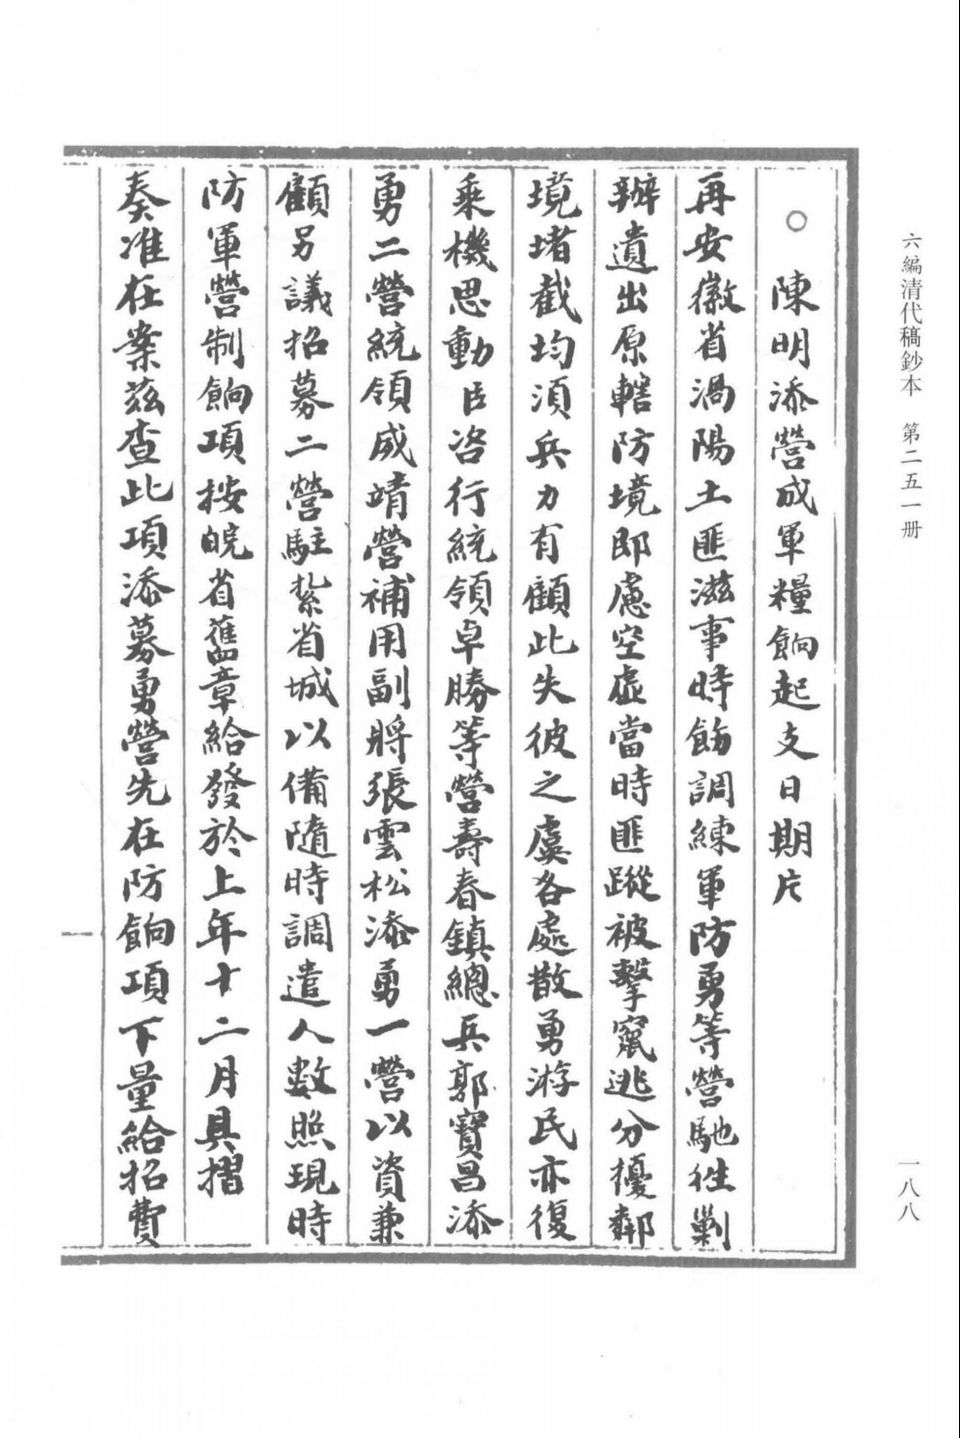 六編清代稿鈔本 第二五一册
一八八
○ 陳明添營成軍糧餉起支日期片
再安徽省渦陽土匪滋事時飭調練軍防勇等營馳徃剿
辦遺出原轄防境即慮空虛當時匪蹤被擊竄逃分擾鄰
境堵截均須兵力有顧此失彼之虞各處散勇游民亦復
乘機思動臣咨行統領卓勝等營壽春鎮總兵郭寶昌添
勇二營統領威靖營補用副將張雲松添勇一營以資兼
顧另議招募二營駐紮省城以備隨時調遣人數照現時
防軍營制餉項按皖省舊章給發於上年十二月具摺
奏准在案茲查此項添募勇營先在防餉項下量給招費